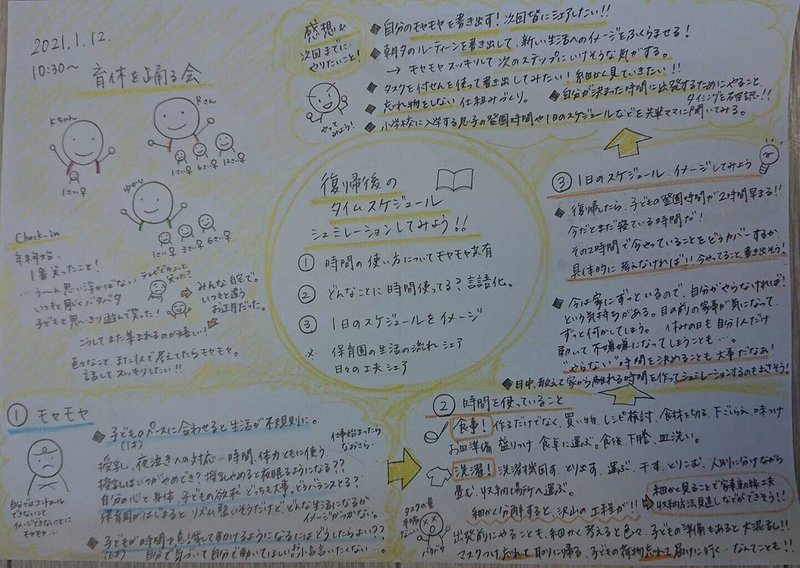 2021.1.12.
10:30〜
育休を踊る会
Kちゃん
Rさん
1さい♀
1さい♀ 6さい♀ 12さい♀
ゆかり
1さい♀ 3さい♀ 6さい♀
Check-in
年末年始、
1番笑ったこと!
…うーん思い浮かばない
テレビでちょっと笑った?
いつもと同じくバタバタ
子どもと思いきり遊んで笑った!
みんな自宅で。
いつもと違う
お正月だった。
こうしてまた集まれるのが嬉しい!
色々なこと、また1人で考えてたらモヤモヤ。
話してスッキリしたい!!
感想&
次回までに
やりたいこと!
やってみよう!
◆自分のモヤモヤを書き出す!次回皆にシェアしたい!!
◆朝夕のルーティーンを書き出して、新しい生活へのイメージをふくらませる!
→ モヤモヤスッキリして次のステップにいけそうな気がする。
◆タスクを付せんを使って書き出してみたい!細かく見ていきたい!!
◆忘れ物をしない仕組みづくり。
◆自分が決まった時間に出発するためにやること、
タイミングを再確認!!
◆小学校に入学する息子の登園時間や1日のスケジュールなどを先輩ママに聞いてみる。
復帰後の
タイムスケジュール
シュミレーションしてみよう!!
① 時間の使い方についてモヤモヤ共有
② どんなことに時間使ってる?言語化。
③ 1日のスケジュールをイメージ
※ 保育園の生活の流れシェア
日々の工夫シェア
③ 1日のスケジュール、イメージしてみよう
◆復帰したら、子どもの登園時間が2時間早まる!!
今だとまだ寝ている時間だ!
その2時間で今やっていることをどうカバーするか、
具体的に考えなければ!!今やってること、書き出そう!
◆今は家にずっといるので、自分がやらなければ!
という気持ちがある。目の前の家事が気になって、
ずっと何かしてしまう。…休みの日も自分1人だけ
動いて不機嫌になってしまうことも…。
"やらない"時間を決めることも大事だなあ!
◆日中、敢えて家から離れる時間を作ってシュミレーションするのも出さそう!
① モヤモヤ
自分ではコントロール
できないこと
イメージができないことに
モヤモヤ…
◆子どものペースに合わせると生活が不規則に。
(1才)
仕事始まったら
なおさら…
授乳、夜泣きへの対応…時間、体力ともに使う
授乳はいつがやめどき?授乳やめると夜眠るようになる??
自分の心と身体、子どもの欲求どっちも大事。どうバランスとる?
保育園がはじまるとリズム整いそうだけど、どんな生活になるか
イメージがつかない。
◆子どもが時間で意識して動けるようになるにはどうしたらよい??
(6才)
自分で気づいて自分で動いてほしい。お小言言いたくない…。
② 時間を使っていること
食事!作るだけでなく、買い物、レシピ検討、食材を切る、下ごしらえ、味つけ
お皿準備、盛りつけ、食卓に運ぶ。食後、下膳、皿洗い。
洗濯!洗濯機回す、とり出す、運ぶ、干す、とりこむ、人別に分けながら
畳む、収納場所へ運ぶ。
細かく分解すると沢山の工程が!!
細かく見ることで家事育の棟工夫
収納方法見直しなどができそう!!
タスクの量
半端ない…!
バタバタ
出発前にやることも、細かく考えると色々。子どもの準備もあると大混乱!!
マスクつけ忘れて取りに帰る、子どもの荷物忘れて届けに行く…なんてことも!!